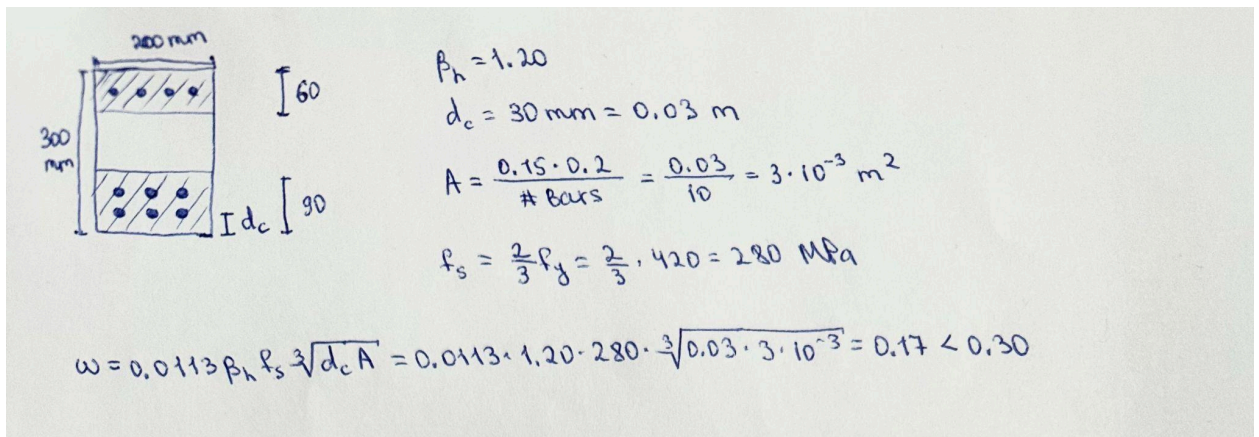 200 mm
300 mm
60
90
dc
βh = 1.20
dc = 30 mm = 0.03 m
A = 0.15 · 0.2 / # Bars = 0.03 / 10 = 3 · 10⁻³ m²
fs = 2/3 fy = 2/3 · 420 = 280 MPa
ω = 0.0113 βh fs ∛(dc A) = 0.0113 · 1.20 · 280 · ∛(0.03 · 3 · 10⁻³) = 0.17 < 0.30